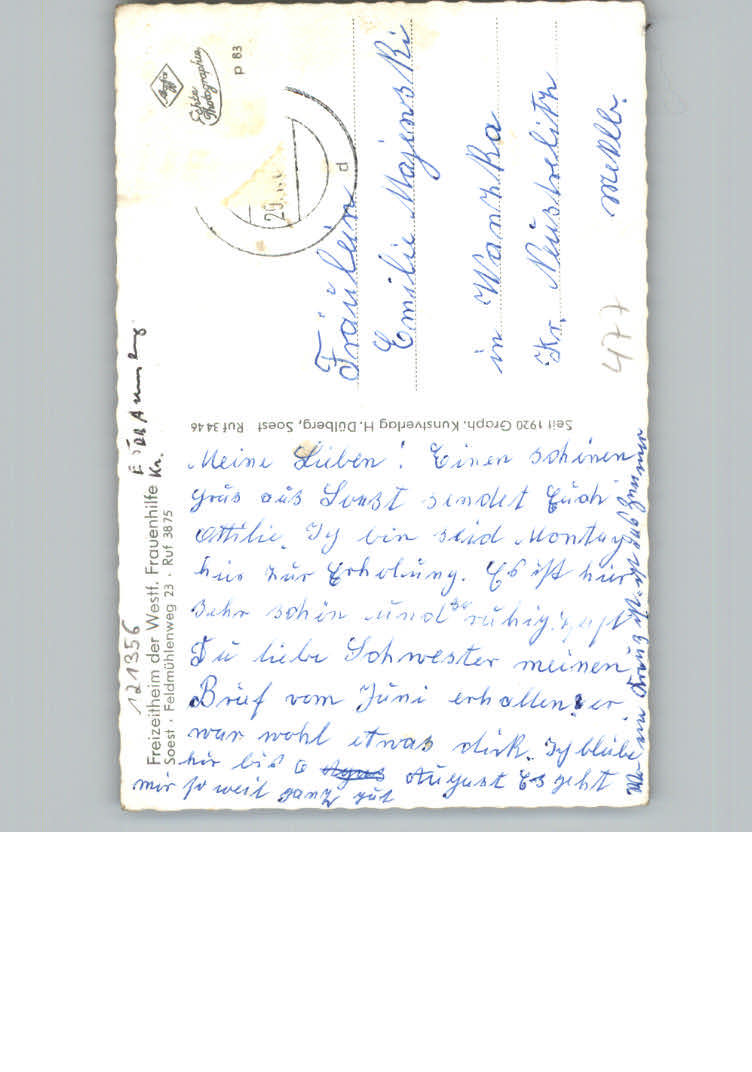 121356
Freizeitheim der Westf. Frauenhilfe
Soest · Feldmühlenweg 23 · Ruf 3875
Kr.
Meine Lieben! Einen schönen
grus aus Soest sendet Euch
Ottilie. Ich bin seid Montag
hier zur Erholung. Es ist hier
Sehr schön und ruhig.
Du liebe Schwester meinen
Brief vom Juni erhalten? er
war wohl etwas dick. Ich bleibe
hir bis 6 August Es geht
mir so weit ganz gut
Wo ein Kreuz ist ist das
Seit 1920 Graph. Kunstverlag H. Dülberg, Soest Ruf 3446
Agfa
Echte Photographie
p 83
29.
d
Fräulein
Emilie Majenski
in Wanzka
Kr. Neustrelitz
Meklb.
477